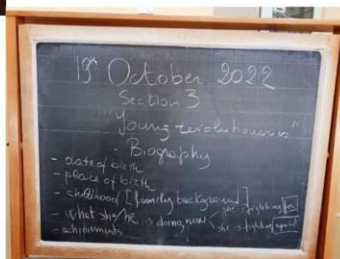 19th October 2022
Section 3
"Young revolutionaries"
- Biography
- date of birth
- place of birth
- childhood [family background]
- what she/he is doing now < she is fighting for
she is fighting against
- achievements